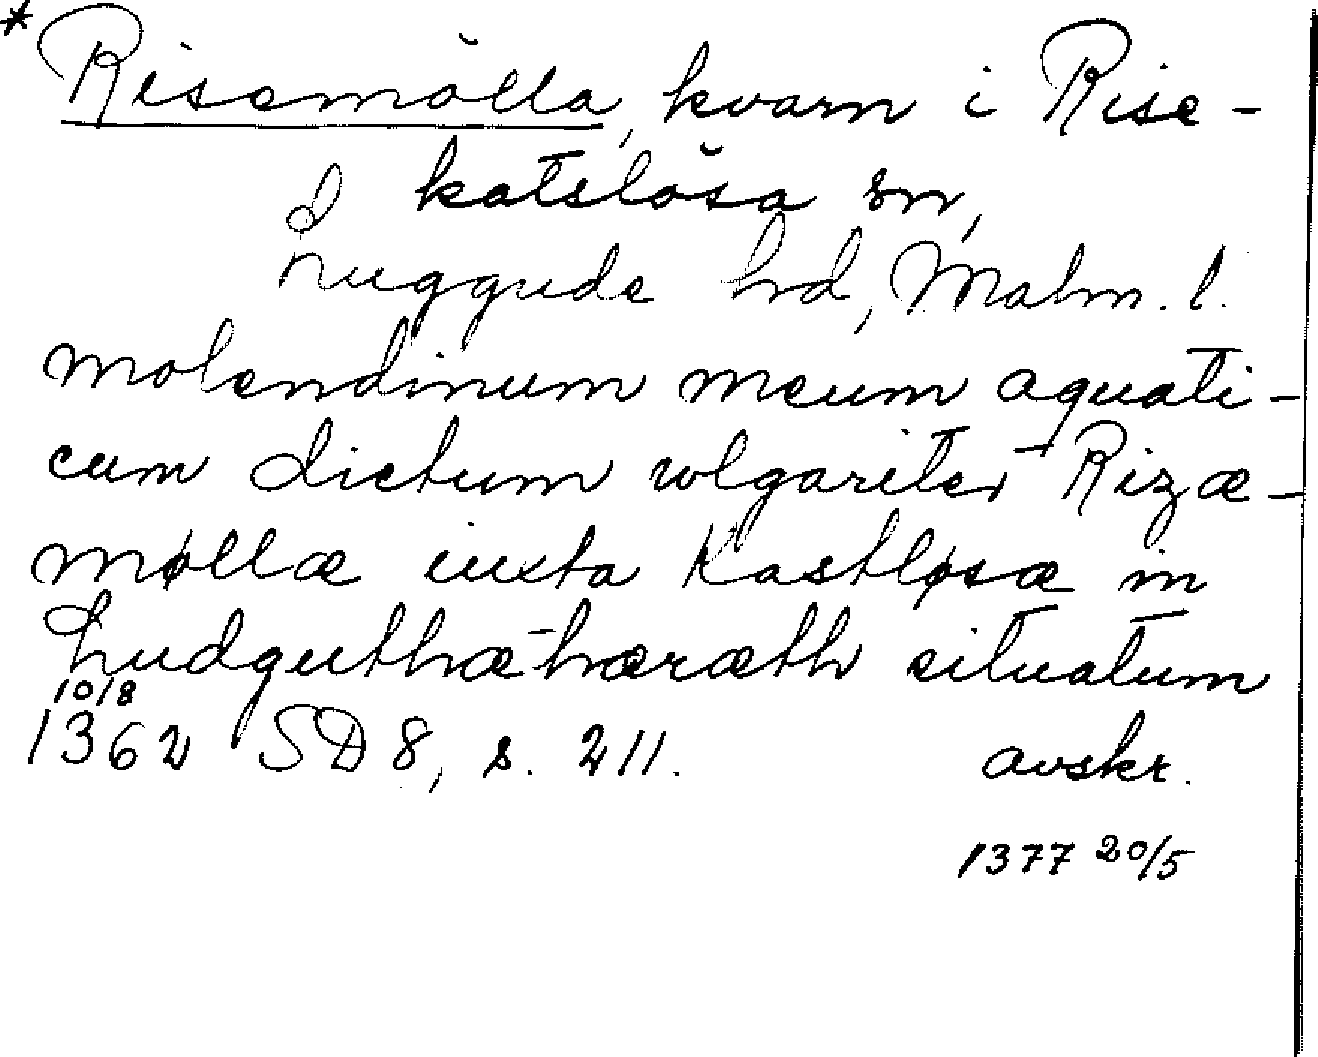 * Risemölla, kvarn i Rise-
katslösa sn,
Luggude hd, Malm. l.
molendinum meum aquati-
cum dictum wlgariter Rizæ-
møllæ iuxta Kastløsæ in
Ludguthæ-hæræth situatum
10/8
1362 SD 8, s. 211. avskr.
1377 20/5